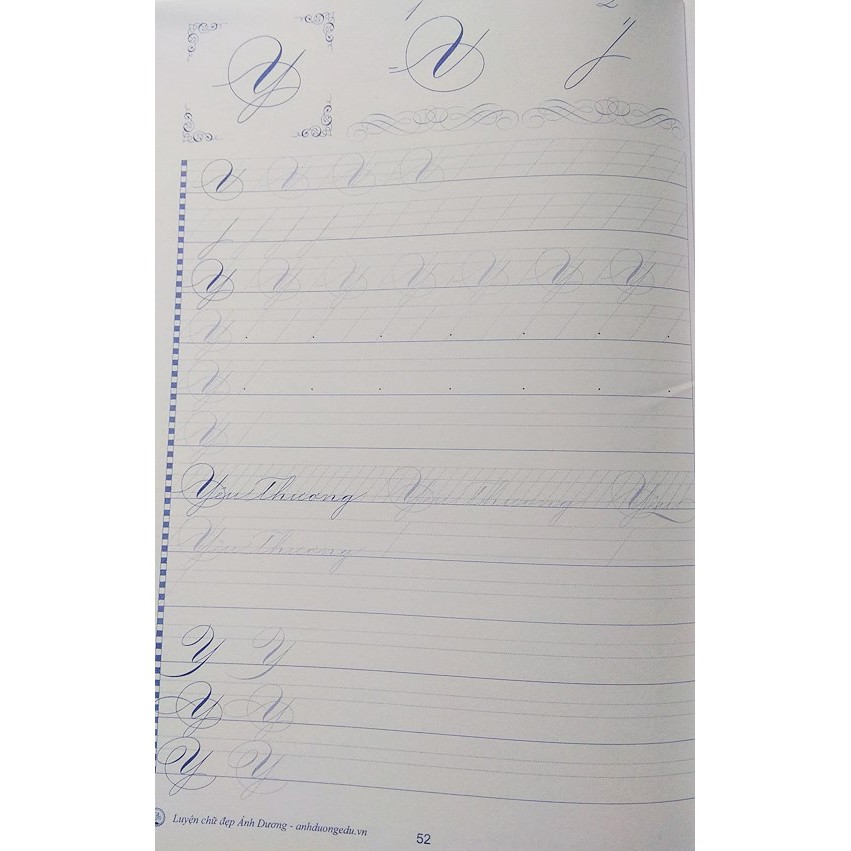 1 2
Y Y
Y Y Y Y Y Y Y
Y
Y
Y
Yêu Thương Yêu Thương Yêu
Yêu Thương
Y Y
Y Y
Y Y
Luyện chữ đẹp Ánh Dương - anhduongedu.vn
52